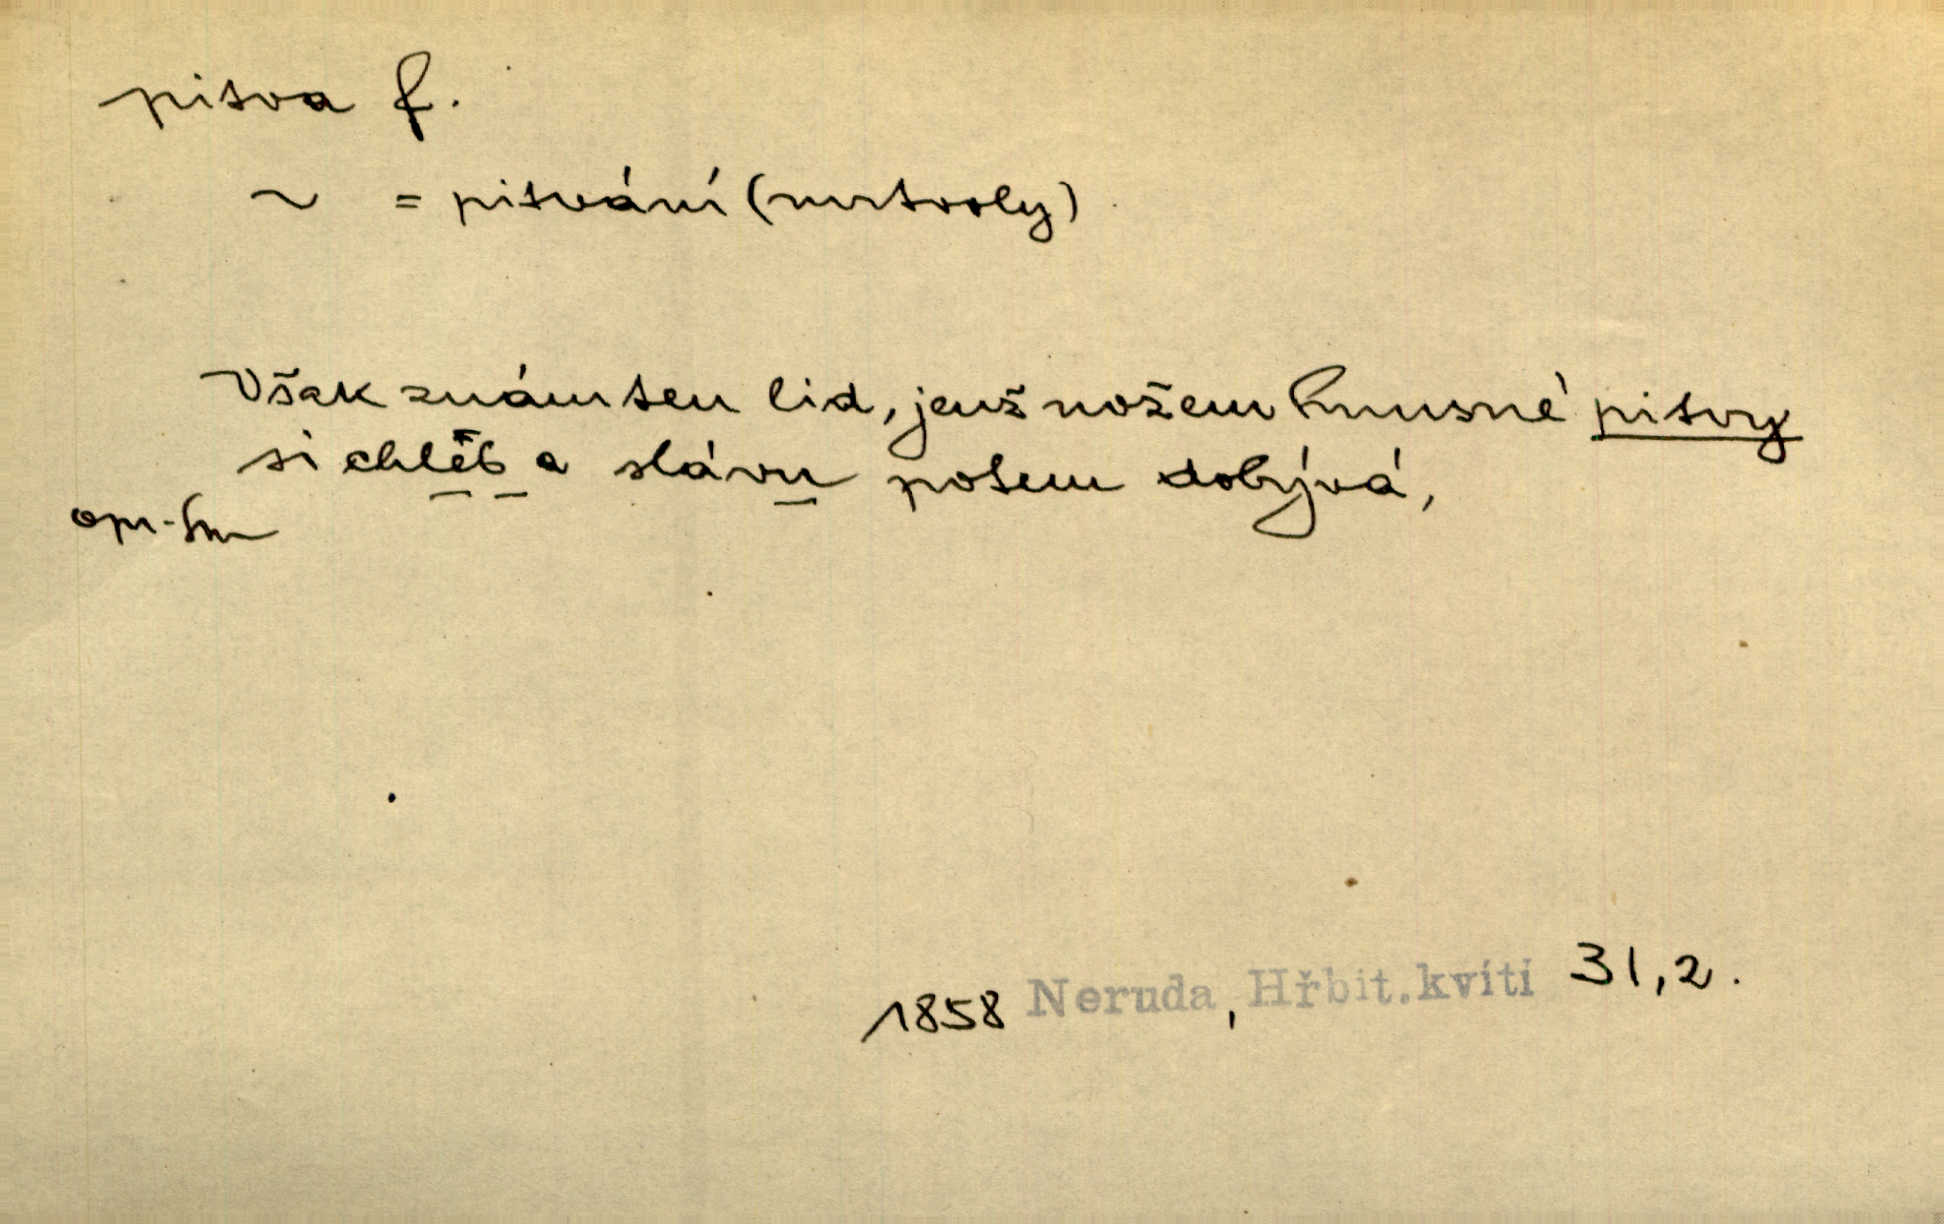 pitva f.
~ = pitvání (mrtvoly)
Však znám ten lid, jenž nožem hnusné pitvy
si chléb a slávu potem dobývá,
opr.
1858 Neruda, Hřbit. kvítí 31,2.